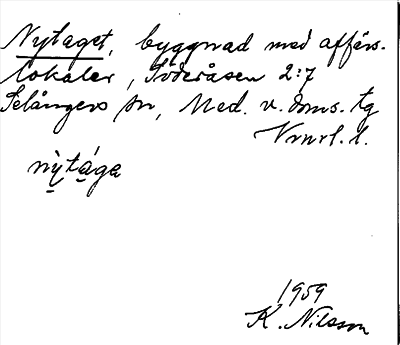 Nytaget, byggnad med affärs-
lokaler, Söderåsen 2:7
Selångers sn, Med. v. doms. tg
Vrnrl. l.
nỳtága
1959
K. Nilsson